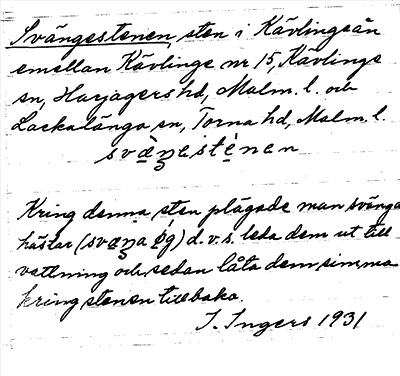 Svängestenen, sten i Kävlingeån
emellan Kävlinge nr 15, Kävlinge
sn, Harjagers hd, Malm. l. och
Lackalänga sn, Torna hd, Malm. l.
svæŋastenen
Kring denna sten plägade man svänga
hästar (svæŋa øg) d.v.s. leda dem ut till
vattning och sedan låta dem simma
kring stenen tillbaka.
I. Ingers 1931